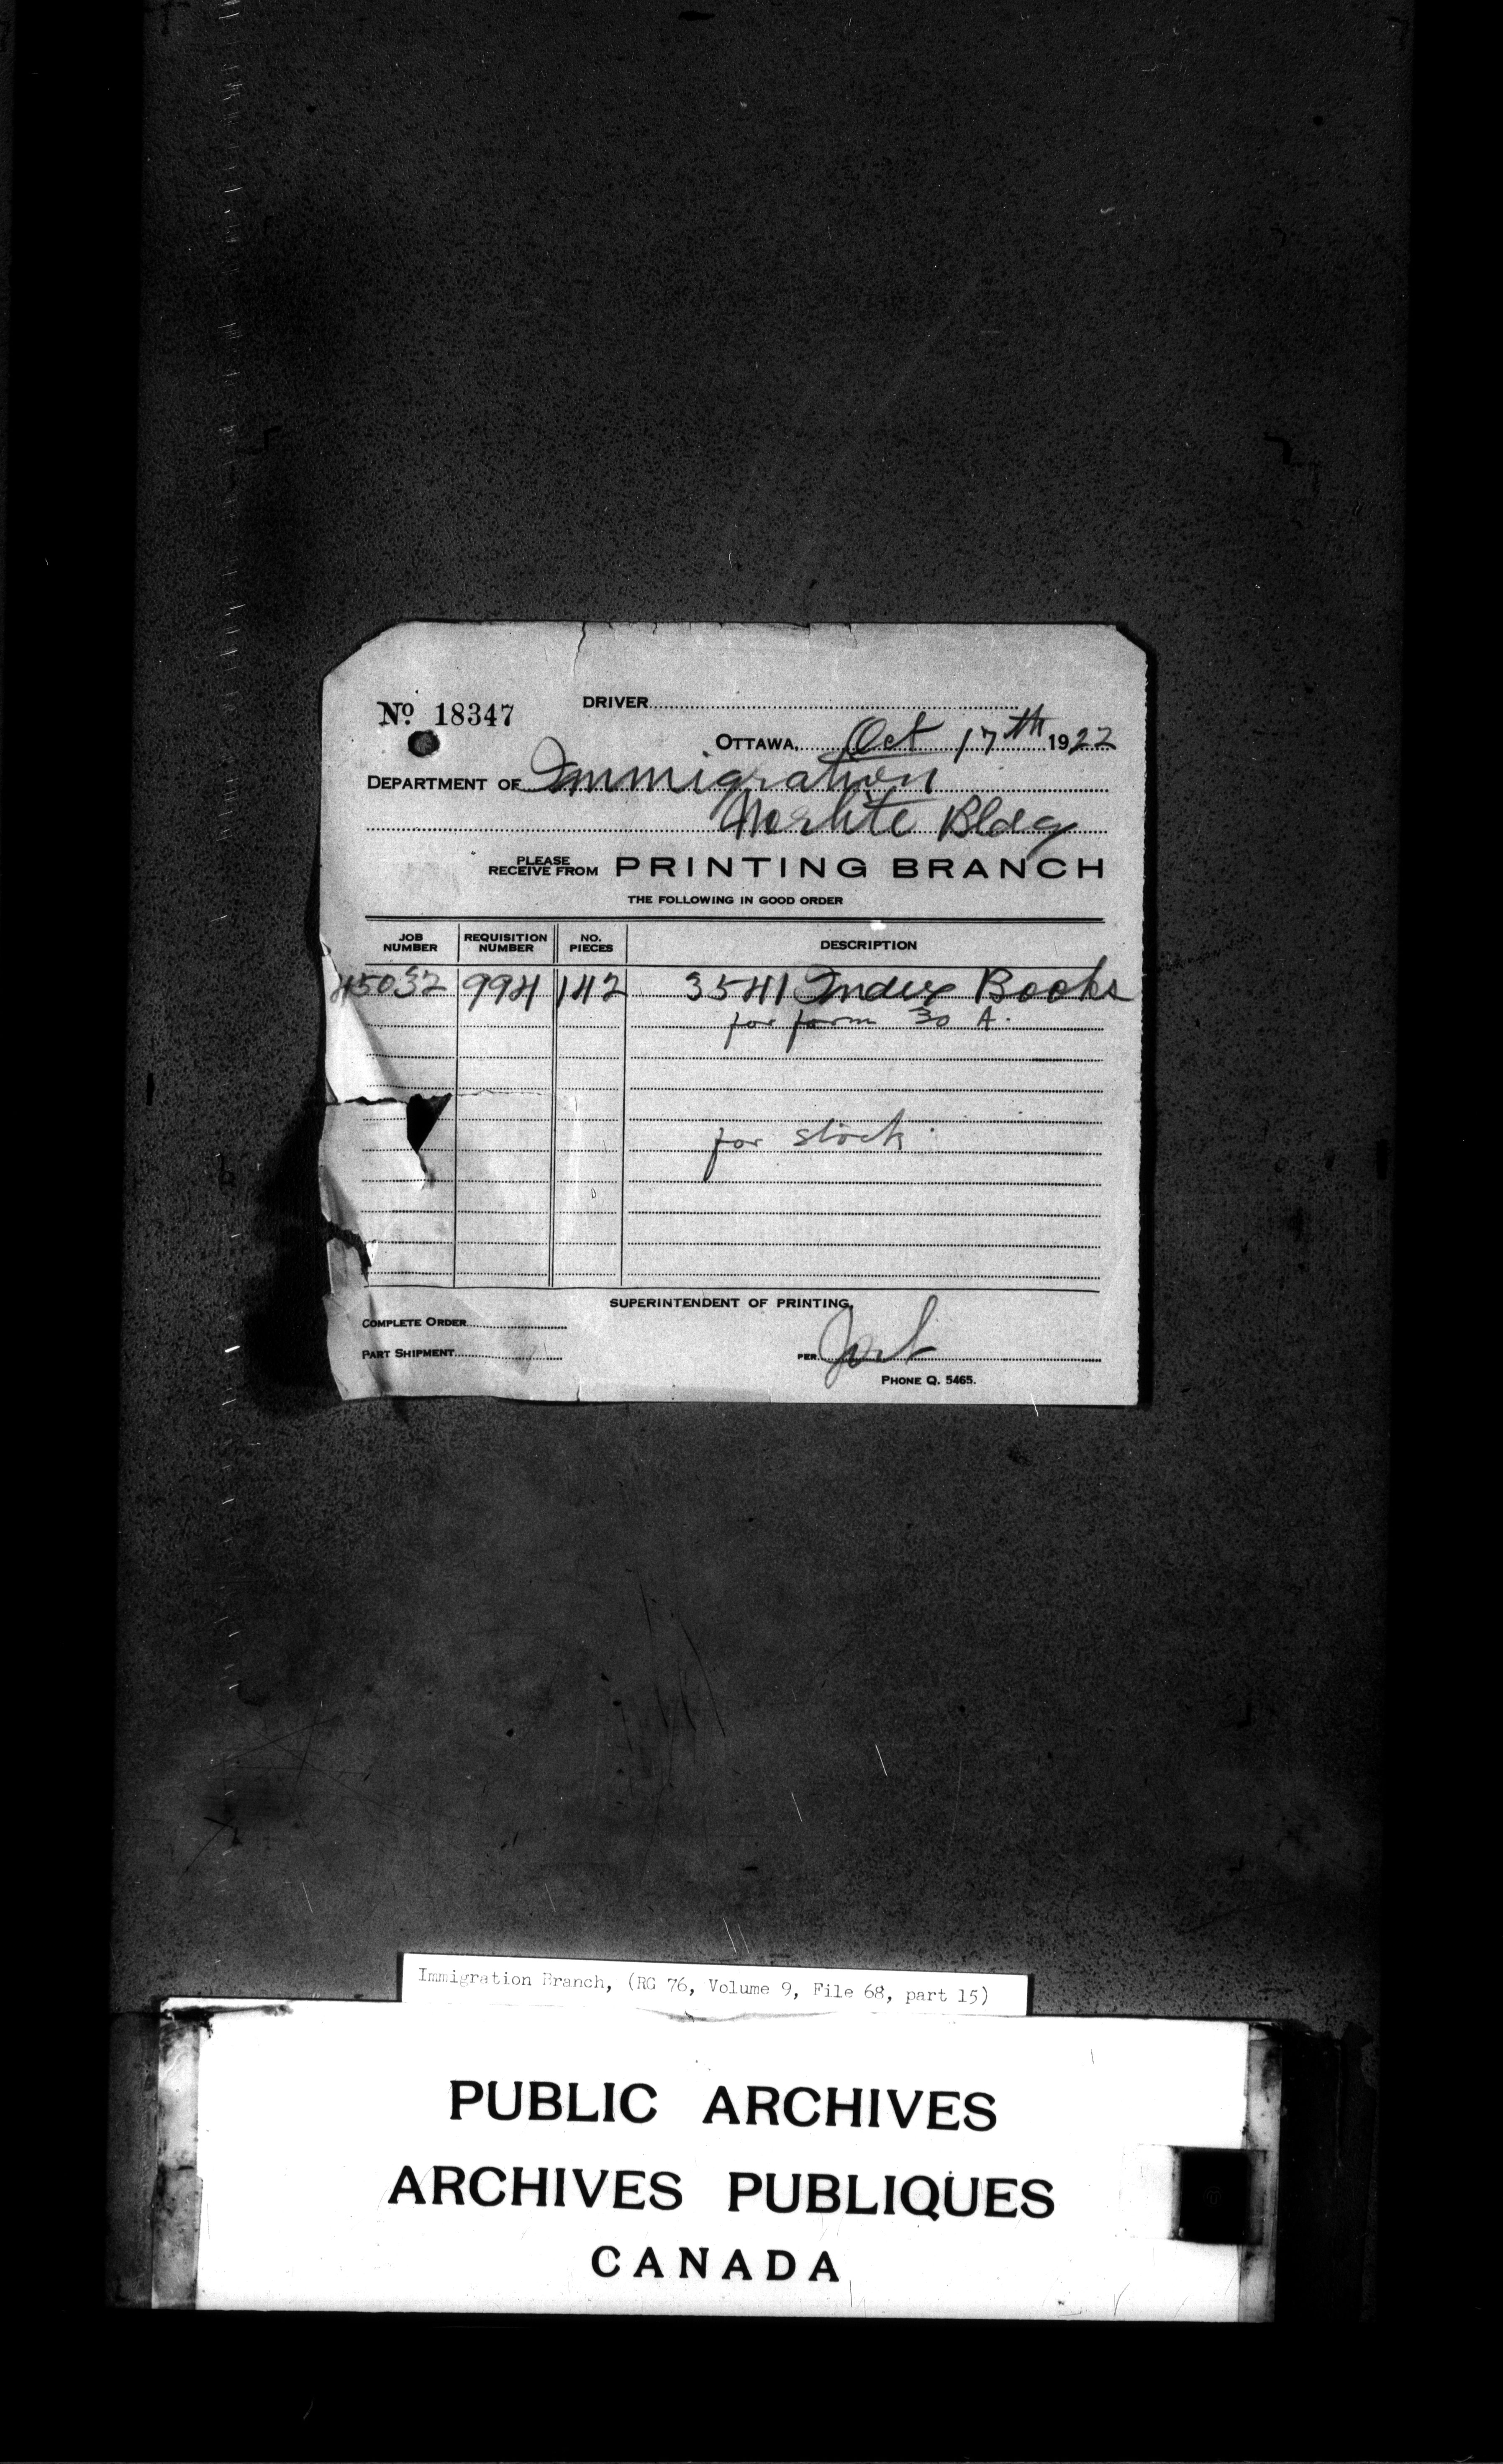 No. 18347
DRIVER
OTTAWA, Oct 17th 1922
DEPARTMENT OF Immigration
Norlite Bldg
PLEASE RECEIVE FROM PRINTING BRANCH
THE FOLLOWING IN GOOD ORDER
JOB NUMBER REQUISITION NUMBER NO. PIECES DESCRIPTION
45032 994 142 3541 Index Books
for form 30 A.
for stock
SUPERINTENDENT OF PRINTING,
COMPLETE ORDER
PART SHIPMENT PER
PHONE Q. 5465.
Immigration Branch, (RG 76, Volume 9, File 68, part 15)
PUBLIC ARCHIVES
ARCHIVES PUBLIQUES
CANADA